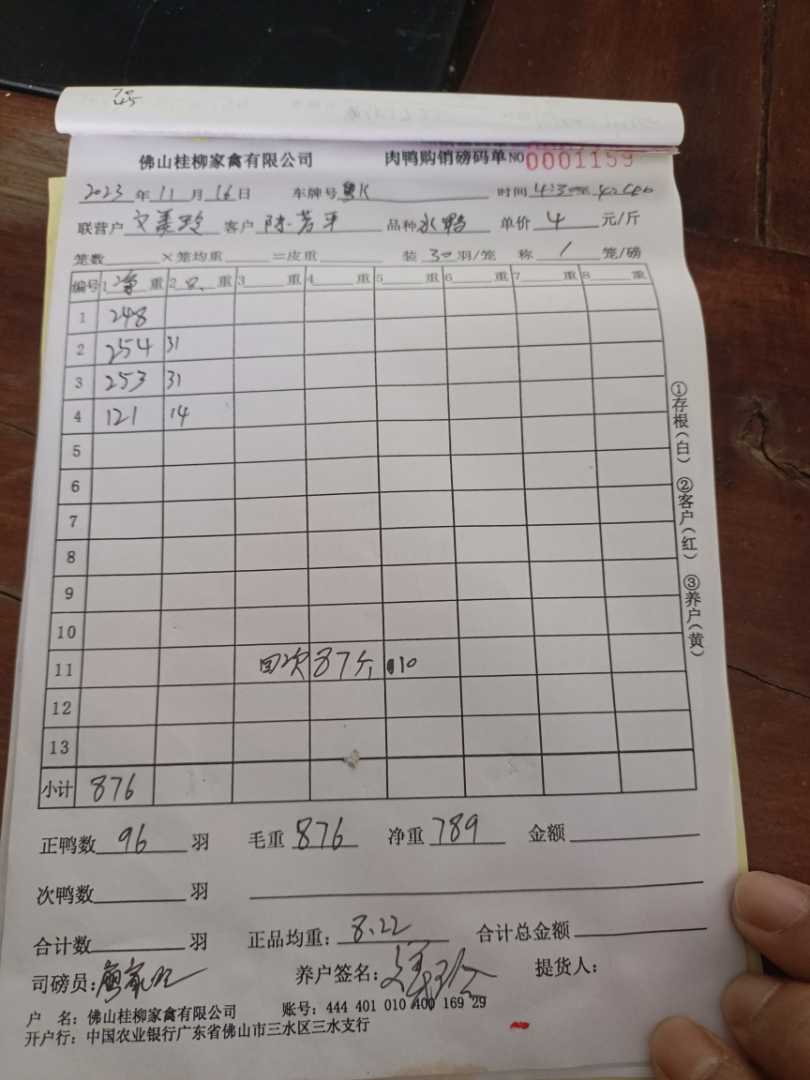 佛山桂柳家禽有限公司 肉鸭购销磅码单 NO 0001159
2023年11月16日 车牌号 粤K 时间
联营户 客户 陈芳平 品种 水鸭 单价 4 元/斤
笼数 ×笼均重 =皮重 装 30 羽/笼 称 1 笼/磅
编号 1 重 2 只 重 3 重 4 重 5 重 6 重 7 重 8 重
1 248
2 254 31
3 253 31
4 121 14
5
6
7
8
9
10
11 回次 87斤 10
12
13
小计 876
正鸭数 96 羽 毛重 876 净重 789 金额
次鸭数 羽
合计数 羽 正品均重: 8.22 合计总金额
司磅员: 养户签名: 提货人:
户 名: 佛山桂柳家禽有限公司 账号: 444 401 010 400 169 29
开户行: 中国农业银行广东省佛山市三水区三水支行
①存根(白) ②客户(红) ③养户(黄)